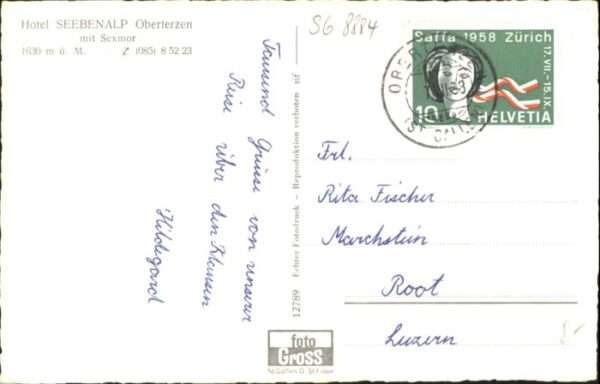 Hotel SEEBENALP Oberterzen
mit Sexmor
1630 m ü. M. ☎ (085) 8 52 23
SG 8884
Saffa 1958 Zürich
17.VII.-15.IX.
10 HELVETIA
Tausend Grüsse von unserer
Reise über den Klausen
Hildegard
12789 Echter Fotodruck - Reproduktion verboten
Frl.
Rita Fischer
Marchstein
Root
Luzern
foto
Gross